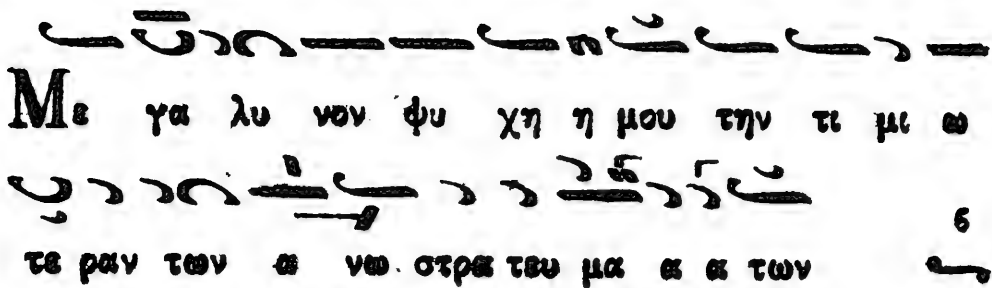 Με γα λυ νον ψυ χη η μου την τι μι ω
τε ραν των α νω στρα τευ μα α α των